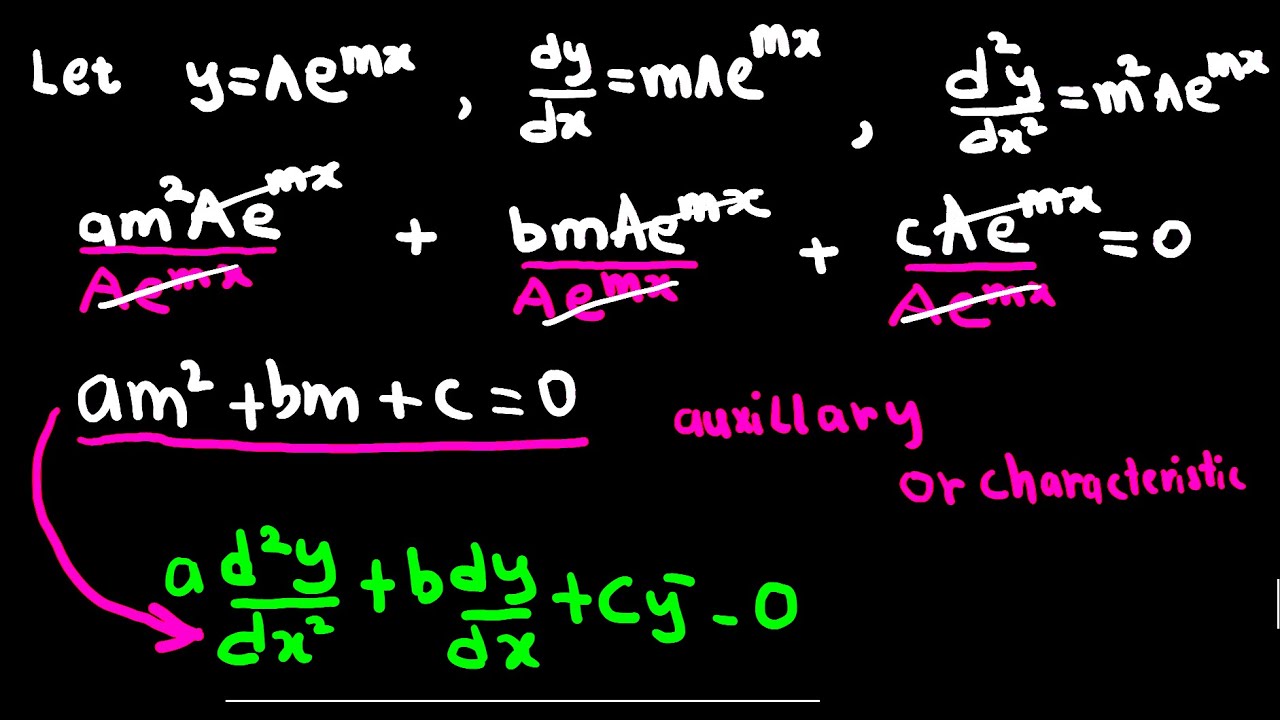 Let y=Ae^{mx} , \frac{dy}{dx}=mAe^{mx} , \frac{d^2y}{dx^2}=m^2Ae^{mx}
\frac{am^2Ae^{mx}}{Ae^{mx}} + \frac{bmAe^{mx}}{Ae^{mx}} + \frac{cAe^{mx}}{Ae^{mx}} =0
am^2+bm+c=0 auxillary
or characteristic
a\frac{d^2y}{dx^2}+b\frac{dy}{dx}+cy=0